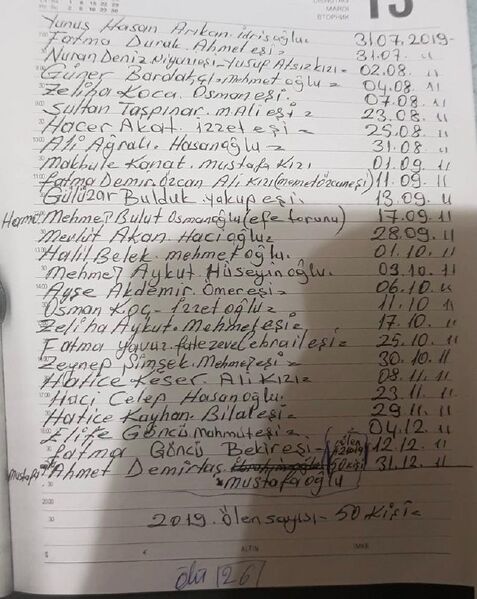 15
MARDI
ВТОРНИК
Yunus Hasan Arıkan. idrisoğlu 31.07.2019-
Fatma Durak. Ahmet eşi = 31.07. 11
Nuran Deniz Yusuf Atsız kızı = 02.08. 11
Güner Bardakçı. Mehmet oğlu = 04.08 11
Zeliha Koca. Osman eşi. 07.08 11
Sultan Taşpınar. M Ali eşi = 23.08 11
Hacer Akat. izzet eşi = 25.08. 11
Ali Ağralı. Hasanoğlu = 31.08 11
Makbule Kanat. Mustafa Kızı 01.09 11
Fatma Demir özcan Ali Kızı (memet özcan eşi) 11.09. 11
Gülüzar Bulduk. yakup eşi. 13.09. 11
Mehmet Bulut Osmanoğlu (efe torunu) 17.09. 11
Mevlüt Akan. Hacıoğlu = 28.09. 11
Halil Belek. mehmet oğlu. 01.10. 11
Mehmet Aykut. Hüseyinoğlu. 03.10. 11
Ayşe Akdemir. Ömer eşi = 06.10. 11
Osman Koç- izzet oğlu = 11.10 11
Zeliha Aykut. Mehmet eşi = 17.10. 11
Fatma yavuz. Cebrail eşi = 25.10. 11
Zeynep Şimşek. Mehmet eşi = 30.10. 11
Hatice Keser. Ali Kızı = 08.11. 11
Hacı Celep Hasanoğlu. 23.11. 11
Hatice Kayhan. Bilal eşi = 29.11. 11
Elife Göncü Mahmut eşi = 04.12. 11
Fatma Göncü Bekir eşi - 12.12. 11
ölen 2019 50 kişi
Mustafa oğlu Ahmet Demirtaş 31.12. 11
* Mustafaoğlu
2019. ölen sayısı- 50 Kişi =
$ € ALTIN IMKB
ölü 26